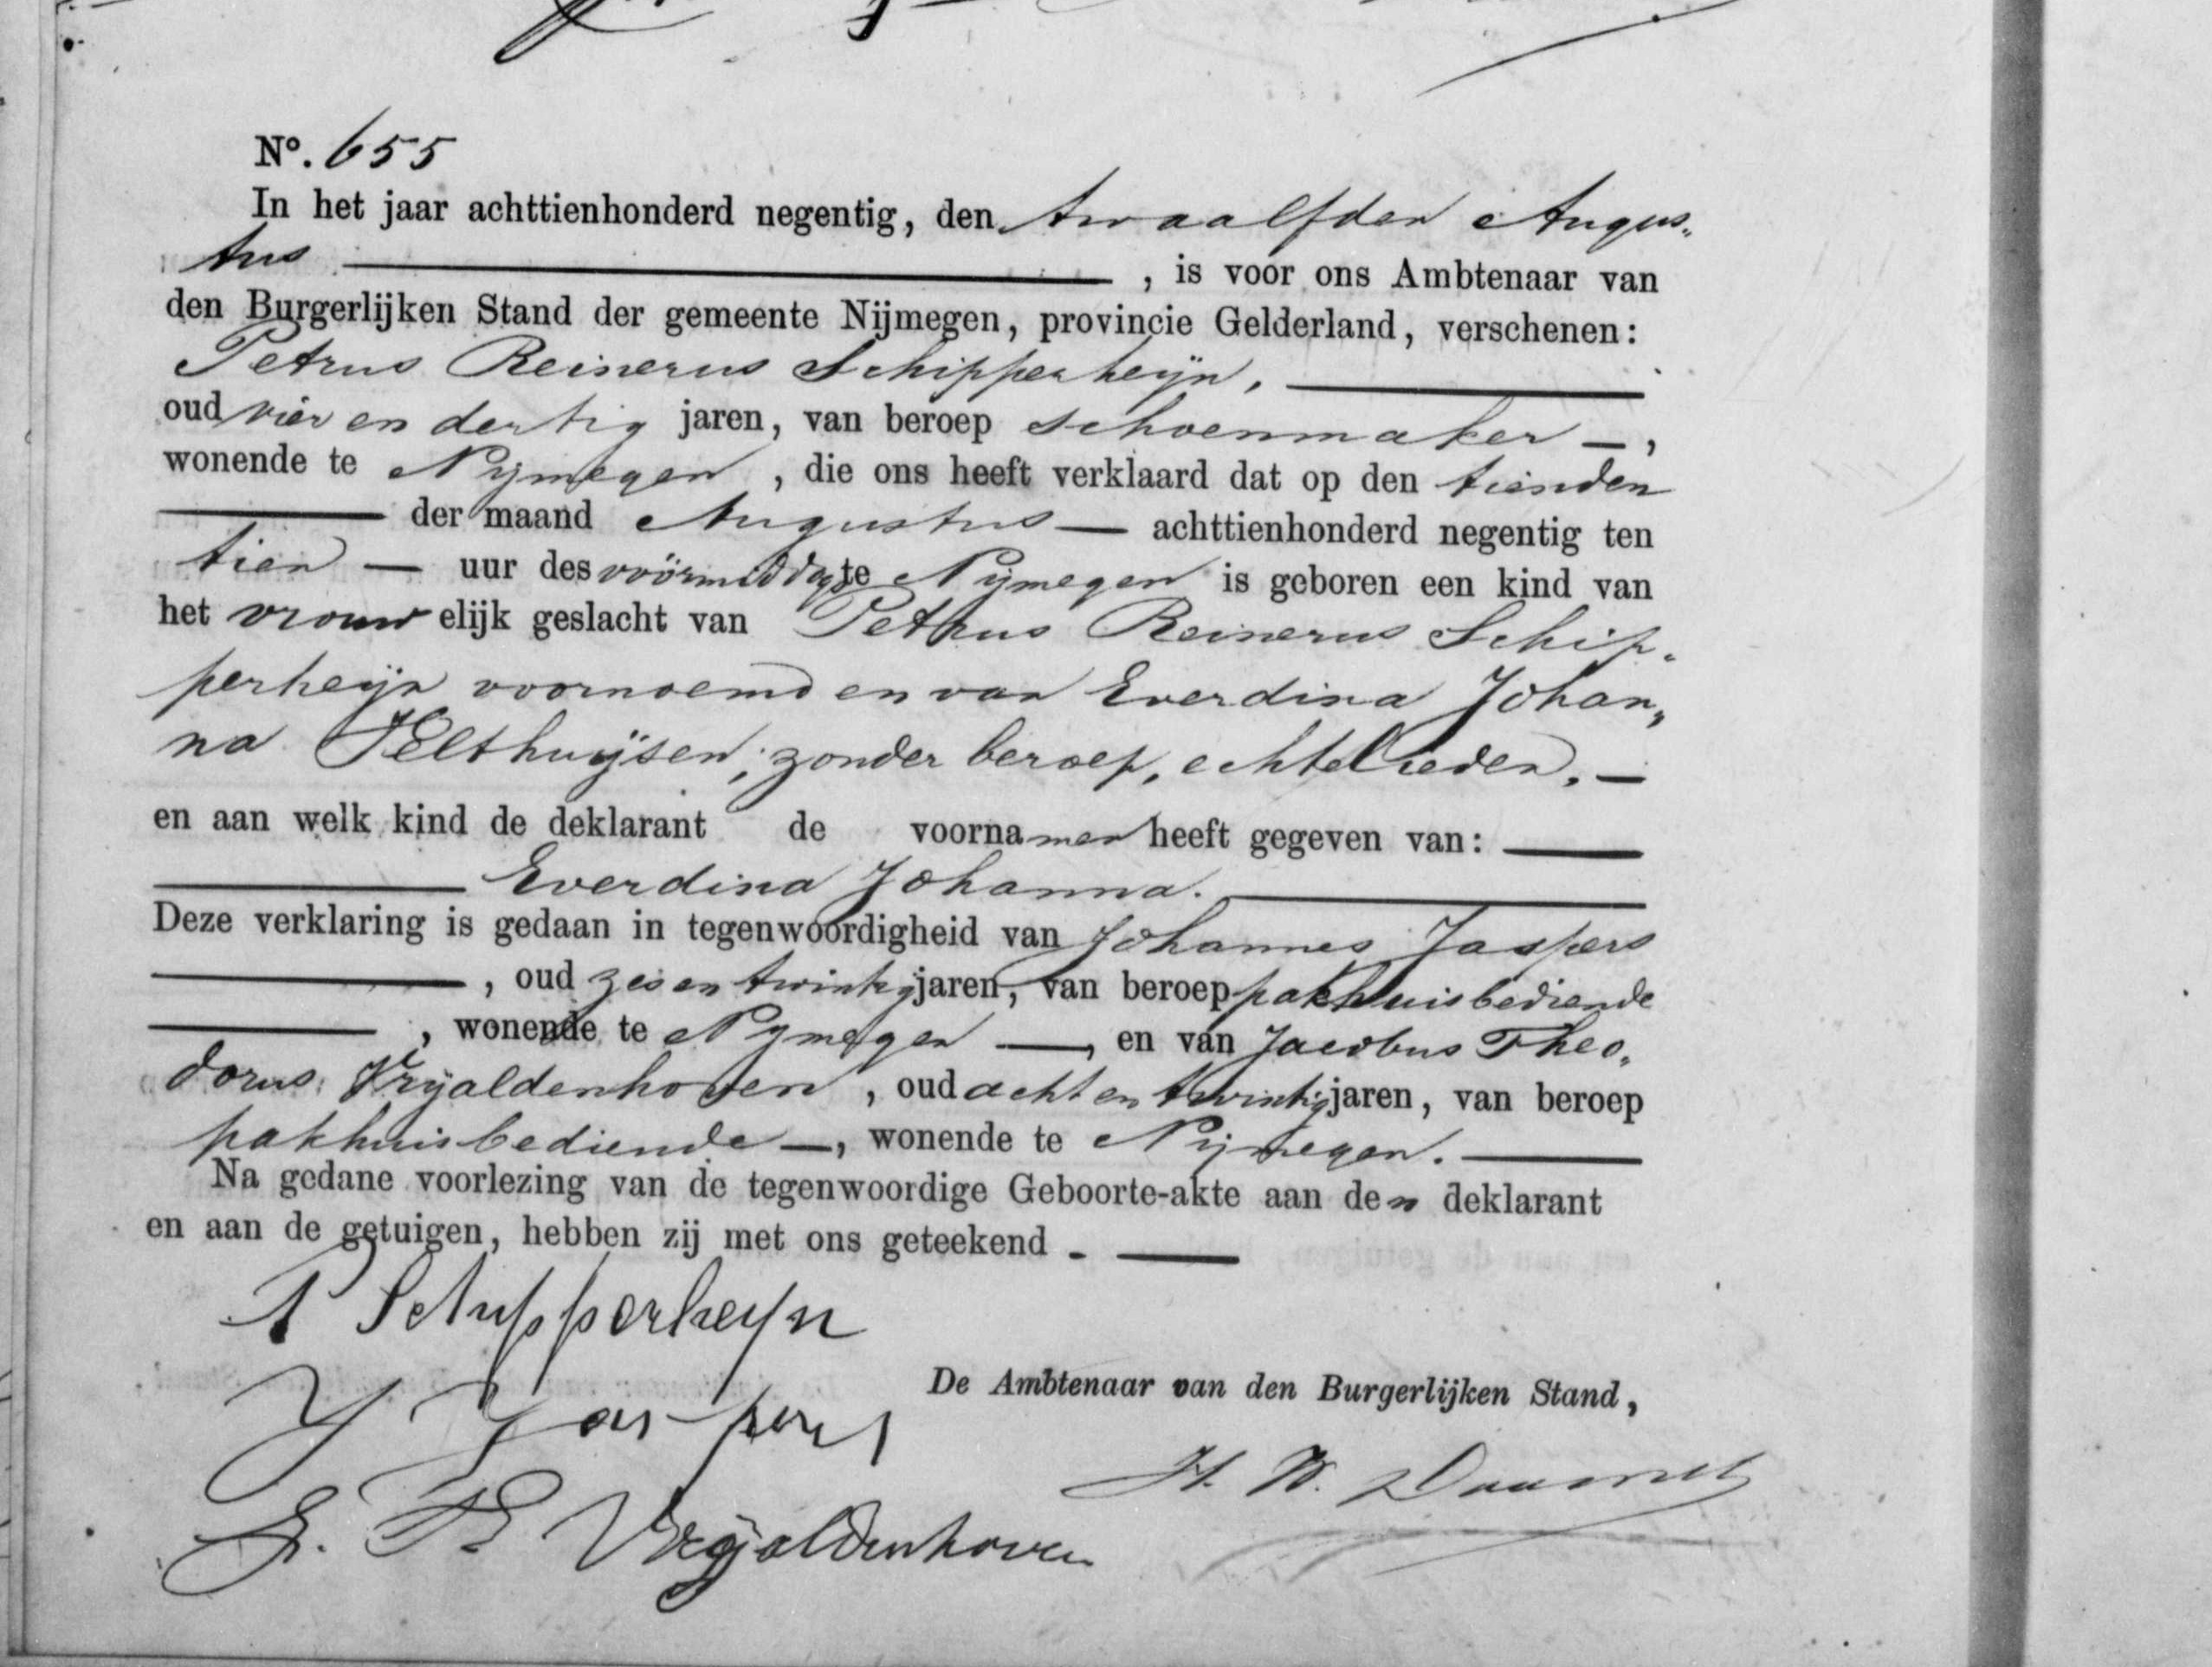 Nº. 655
In het jaar achttienhonderd negentig, den twaalfden Augus„
tus , is voor ons Ambtenaar van
den Burgerlijken Stand der gemeente Nijmegen, provincie Gelderland, verschenen:
Petrus Reinerus Schipperheijn,
oud vier en dertig jaren, van beroep schoenmaker —,
wonende te Nijmegen, die ons heeft verklaard dat op den tienden
— der maand Augustus — achttienhonderd negentig ten
tien — uur des voormiddags te Nijmegen is geboren een kind van
het vrouwelijk geslacht van Petrus Reinerus Schip„
perheijn voornoemd en van Everdina Johan„
na Velthuijsen, zonder beroep, echtelieden. —
en aan welk kind de deklarant de voornamen heeft gegeven van: —
— Everdina Johanna. —
Deze verklaring is gedaan in tegenwoordigheid van Johannes Jaspers
—, oud zes en twintig jaren, van beroep pakhuisbediende
—, wonende te Nijmegen —, en van Jacobus Theo„
dorus Vrijaldenhoven, oud acht en twintig jaren, van beroep
pakhuisbediende —, wonende te Nijmegen. —
Na gedane voorlezing van de tegenwoordige Geboorte-akte aan den deklarant
en aan de getuigen, hebben zij met ons geteekend. —
P Schipperheyn
De Ambtenaar van den Burgerlijken Stand,
J Jaspers
H. W.
Vrijaldenhoven